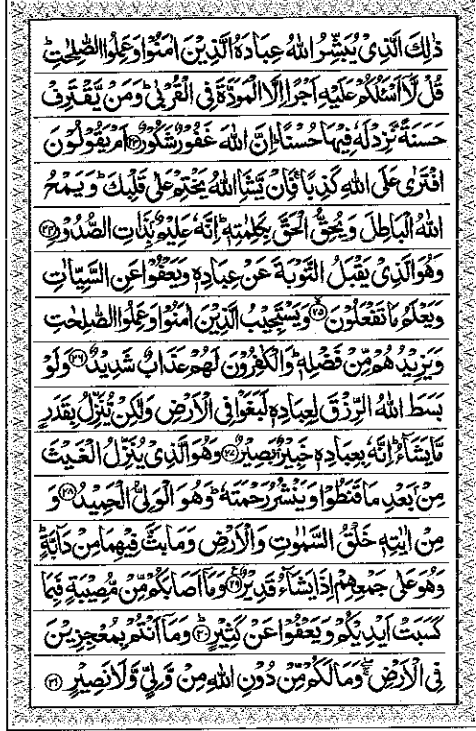 ذٰلِكَ الَّذِیْ یُبَشِّرُ اللّٰهُ عِبَادَهُ الَّذِیْنَ اٰمَنُوْا وَعَمِلُوا الصّٰلِحٰتِ ؕ
قُلْ لَّاۤ اَسْـَٔلُكُمْ عَلَیْهِ اَجْرًا اِلَّا الْمَوَدَّةَ فِی الْقُرْبٰی ؕ وَمَنْ یَّقْتَرِفْ
حَسَنَةً نَّزِدْ لَهٗ فِیْهَا حُسْنًا ؕ اِنَّ اللّٰهَ غَفُوْرٌ شَكُوْرٌ ﴿۲۳﴾ اَمْ یَقُوْلُوْنَ
افْتَرٰی عَلَی اللّٰهِ كَذِبًا ۚ فَاِنْ یَّشَاِ اللّٰهُ یَخْتِمْ عَلٰی قَلْبِكَ ؕ وَیَمْحُ
اللّٰهُ الْبَاطِلَ وَیُحِقُّ الْحَقَّ بِكَلِمٰتِهٖ ؕ اِنَّهٗ عَلِیْمٌۢ بِذَاتِ الصُّدُوْرِ ﴿۲۴﴾
وَهُوَ الَّذِیْ یَقْبَلُ التَّوْبَةَ عَنْ عِبَادِهٖ وَیَعْفُوْا عَنِ السَّیِّاٰتِ
وَیَعْلَمُ مَا تَفْعَلُوْنَ ﴿۲۵﴾ وَیَسْتَجِیْبُ الَّذِیْنَ اٰمَنُوْا وَعَمِلُوا الصّٰلِحٰتِ
وَیَزِیْدُهُمْ مِّنْ فَضْلِهٖ ؕ وَالْكٰفِرُوْنَ لَهُمْ عَذَابٌ شَدِیْدٌ ﴿۲۶﴾ وَلَوْ
بَسَطَ اللّٰهُ الرِّزْقَ لِعِبَادِهٖ لَبَغَوْا فِی الْاَرْضِ وَلٰكِنْ یُّنَزِّلُ بِقَدَرٍ
مَّا یَشَآءُ ؕ اِنَّهٗ بِعِبَادِهٖ خَبِیْرٌۢ بَصِیْرٌ ﴿۲۷﴾ وَهُوَ الَّذِیْ یُنَزِّلُ الْغَیْثَ
مِنْۢ بَعْدِ مَا قَنَطُوْا وَیَنْشُرُ رَحْمَتَهٗ ؕ وَهُوَ الْوَلِیُّ الْحَمِیْدُ ﴿۲۸﴾ وَ
مِنْ اٰیٰتِهٖ خَلْقُ السَّمٰوٰتِ وَالْاَرْضِ وَمَا بَثَّ فِیْهِمَا مِنْ دَآبَّةٍ ؕ
وَهُوَ عَلٰی جَمْعِهِمْ اِذَا یَشَآءُ قَدِیْرٌ ﴿۲۹﴾ وَمَاۤ اَصَابَكُمْ مِّنْ مُّصِیْبَةٍ فَبِمَا
كَسَبَتْ اَیْدِیْكُمْ وَیَعْفُوْا عَنْ كَثِیْرٍ ﴿۳۰﴾ وَمَاۤ اَنْتُمْ بِمُعْجِزِیْنَ
فِی الْاَرْضِ ۚۖ وَمَا لَكُمْ مِّنْ دُوْنِ اللّٰهِ مِنْ وَّلِیٍّ وَّلَا نَصِیْرٍ ﴿۳۱﴾